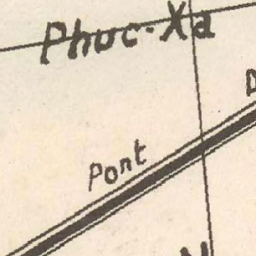 Phuc-Xa
Pont